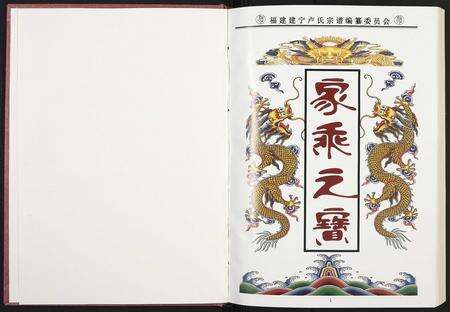 福建建宁卢氏宗谱编纂委员会
家
乘
之
寶
1